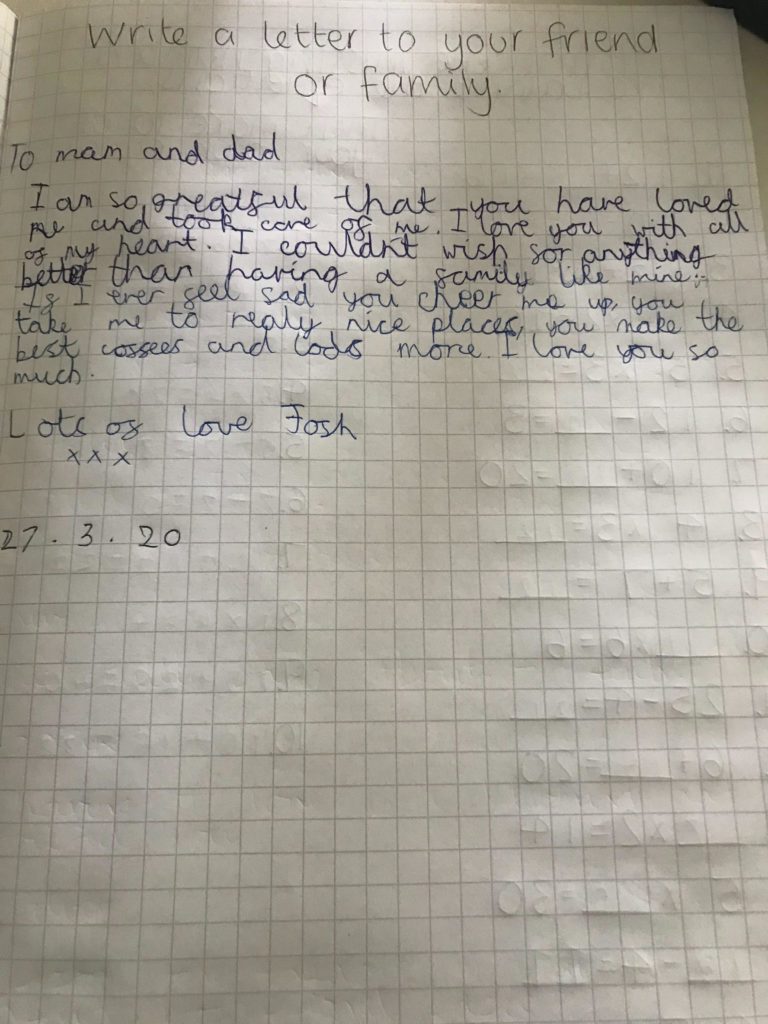 Write a letter to your friend
or family.
To mam and dad
I am so greatful that you have loved
me and took care of me. I love you with all
of my heart. I couldn't wish for anything
better than having a family like mine.
If I ever feel sad you cheer me up, you
take me to realy nice places, you make the
best coffees and lods more. I love you so
much.
Lots of love Josh
x x x
27.3.20